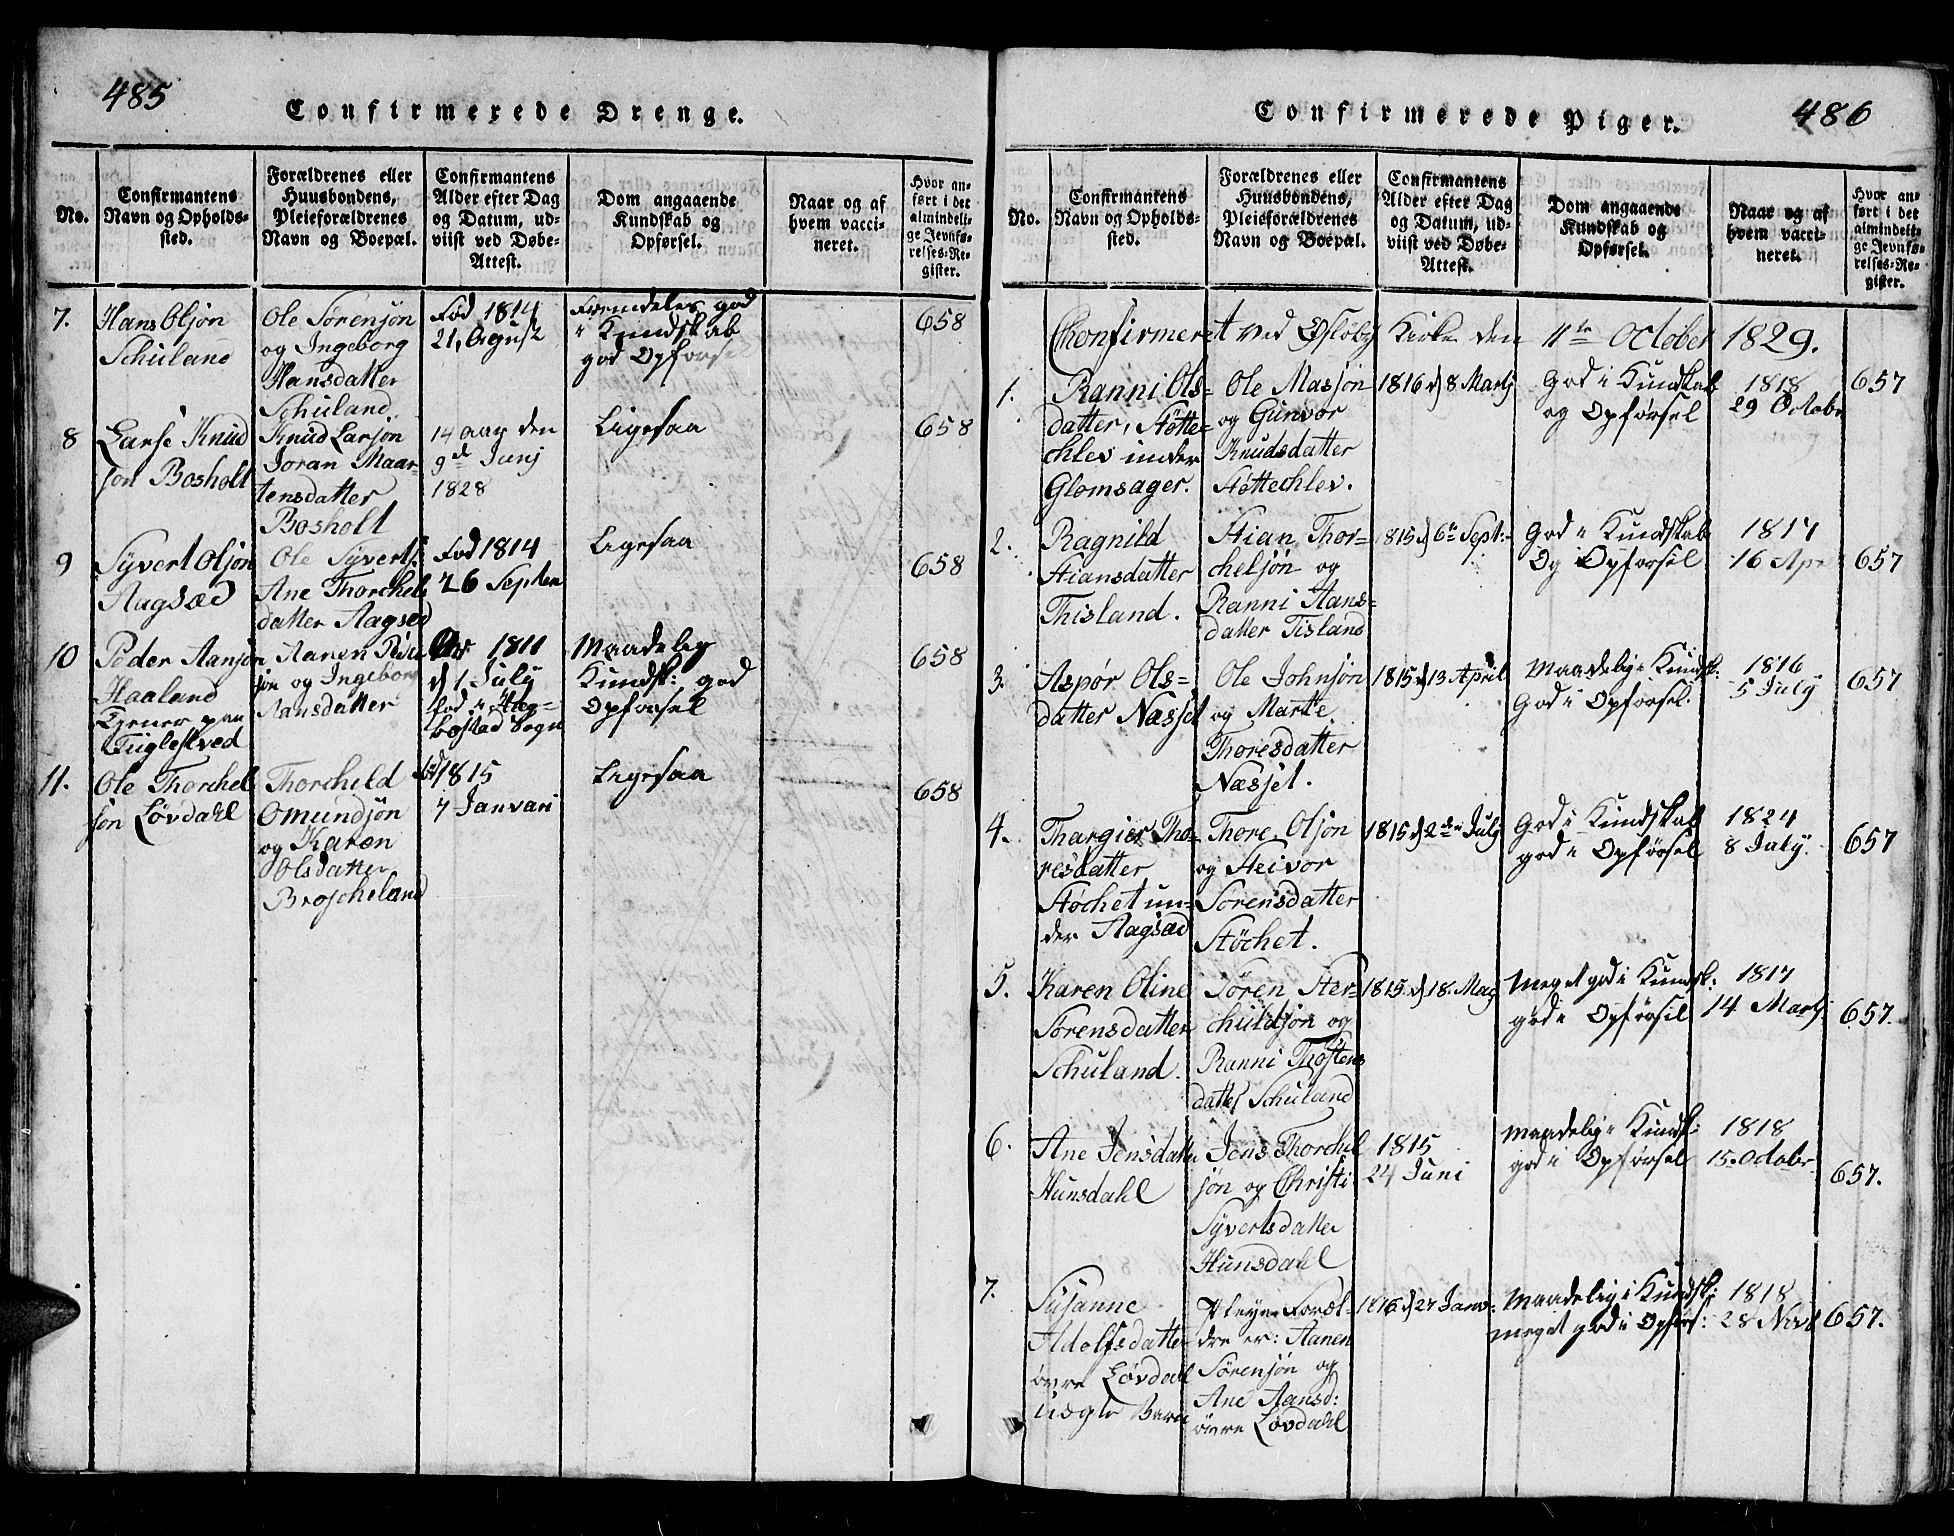 485
Confirmerede Drenge.
No.
Confirmantens
Navn og Opholds-
sted.
Forældrenes eller
Huusbondens,
Pleieforældrenes
Navn og Boepæl.
Confirmantens
Alder efter Dag
og Datum, ud-
viist ved Døbe-
Attest.
Dom angaaende
Kundskab og
Opførsel.
Naar og af
hvem vacci-
neret.
Hvor an-
ført i det
almindeli-
ge Jevnfø-
relses-Re-
gister.
7.
Hans Olsøn
Schuland
Ole Sørensøn
og Ingeborg
Hansdatter
Schuland.
Fød 1814
21, August
god
i Kundskab
god Opførsel
658
8
Larse Knud
søn Bosholt
Knud Larsøn
Joran Maar-
tensdatter
Bosholt
14 aar den
9de Junj
1828
Ligesaa
658
9
Syvert Olsøn
Aagsæd
Ole Syverts:
Ane Thorchels
datter Aagsed
Fød 1814
26 Septen
Ligesaa
658
10
Peder Aansøn
Haaland
tjener paa
Fuglestved
Aanen Peder
søn og Ingeborg
Aansdatter
1811
d 1 July
fød i Hæg-
bostad Sogn
Maadelig
Kundsk: god
Opførsel
658
11.
Ole Thorchel
søn Løvdahl
Thorcheld
Omundsøn
og Karen
Olsdatter
Broscheland
fød 1815
7 Januari
Ligesaa
658
486
Confirmerede Piger.
No.
Confirmantens
Navn og Opholds-
sted.
Forældrenes eller
Huusbondens,
Pleieforældrenes
Navn og Boepæl.
Confirmantens
Alder efter Dag
og Datum, ud-
viist ved Døbe-
Attest.
Dom angaaende
Kundskab og
Opførsel.
Naar og af
hvem vacci-
neret.
Hvor an-
ført i det
almindeli-
ge Jevnfø-
relses-Re-
gister.
Chonfirmeret ved Øsløby Kirke den 11te October 1829.
1.
Ranni Ols-
datter, Støtte-
chlev under
Glomsager.
Ole Masjøn
og Gunvor
Knudsdatter
Støttechlev.
1816 d 8 Martj
God i Kundskab
og Opførsel
1818
29 Octobr
657
2.
Ragnild
Stiansdatter
Thisland.
Stian Thor-
cheljøn og
Ranni Aans-
datter Tisland
1815 d 6te Sept:
God i Kundskab
Og i Opførsel
1817
16 Apr
657
3.
Aspør Ols-
datter Næsset
Ole Johnsøn
og Marte
Thoresdatter
Næsset.
1815 d 13 April
Maadelig i Kundsk:
God i Opførsel.
1816
5 July
657
4.
Thargier Tho-
resdatter
Støchet un-
der Aagsæd
Thore Olsøn
og Steivor
Sørensdatter
Støchet.
1815 d 2den July
God i Kundskab
god i Opførsel
1824
8 July.
657
5.
Karen Oline
Sørensdatter
Schuland.
Søren Ster-
chuldsøn og
Ranni Thostens
datter Schuland
1815 d 18. May
Meget god i Kundsk:
god i Opførsel
1817
14 Martj
657.
6.
Ane Jensdatter
Hunsdahl
Jens Thorchel
søn og Christi
Syvertsdatter
Hunsdahl
1815
24 Juni
Maadelig i Kundsk:
god i Opførsel
1818
15. Octobr
657.
7.
Susanne
Adolfsdatter
øvre Løvdahl
Uægte Barn
Pleye Foræl-
dre er: Aanen
Sørensøn og
Ane Aansd:
øvre Løvdahl
1816 d 27 Janv:
Maadelig i Kundsk:
meget god i Opførs:
1818
28 Novb
657.